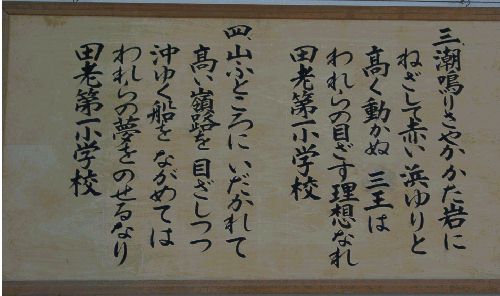 三、潮鳴りさやか かた岩に
ねざして赤い 浜ゆりと
高く動かぬ 三王は
われらの目ざす理想なれ
田老第一小学校
四、山ふところに いだかれて
高い嶺路を 目ざしつつ
沖ゆく船を ながめては
われらの夢を のせるなり
田老第一小学校